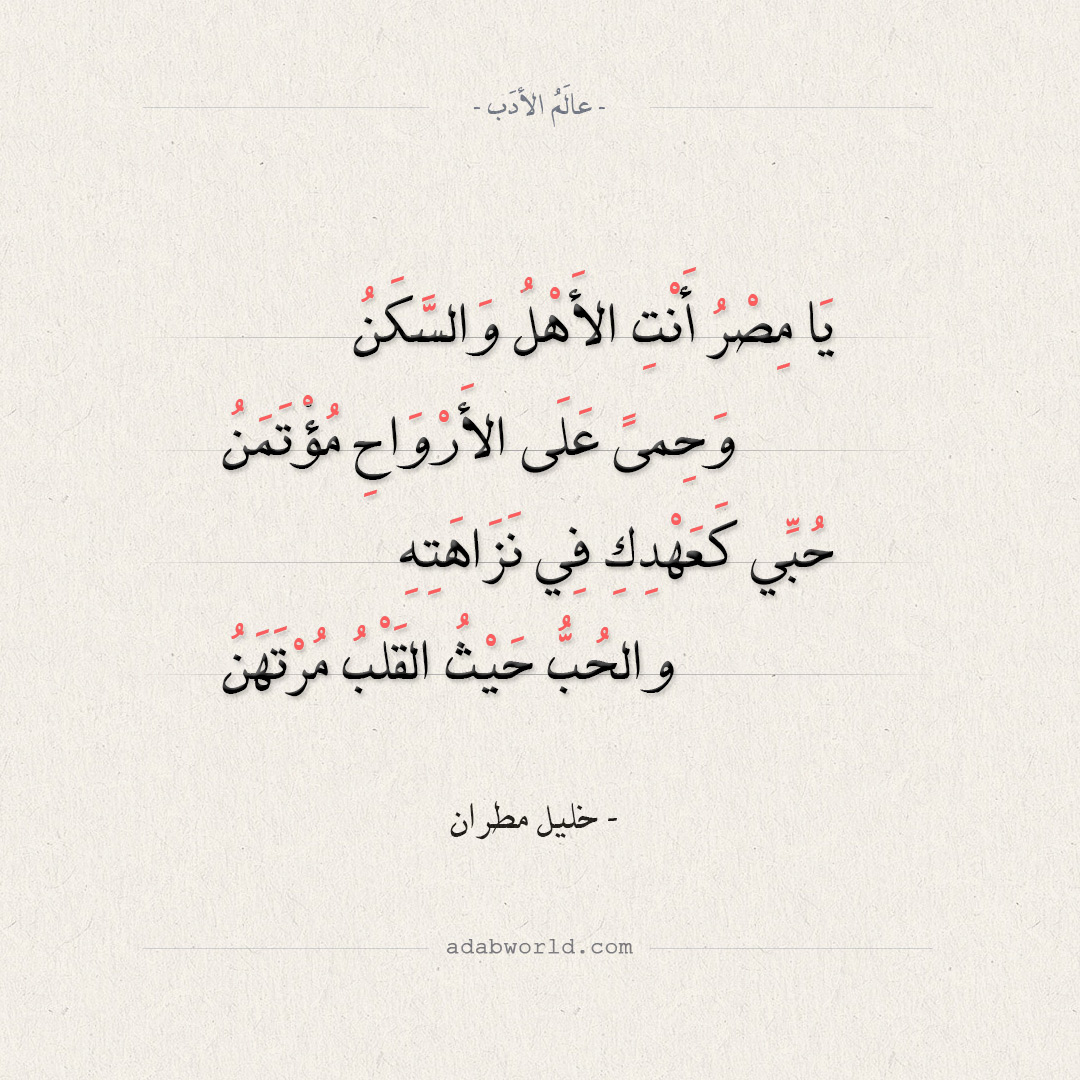 - عالَمُ الأدَب -
يَا مِصْرُ أَنْتِ الأَهْلُ وَالسَّكَنُ
وَحِمىً عَلَى الأَرْوَاحِ مُؤْتَمَنُ
حُبِّي كَعَهْدِكِ فِي نَزَاهَتِهِ
والحُبُّ حَيْثُ القَلْبُ مُرْتَهَنُ
- خليل مطران
adabworld.com